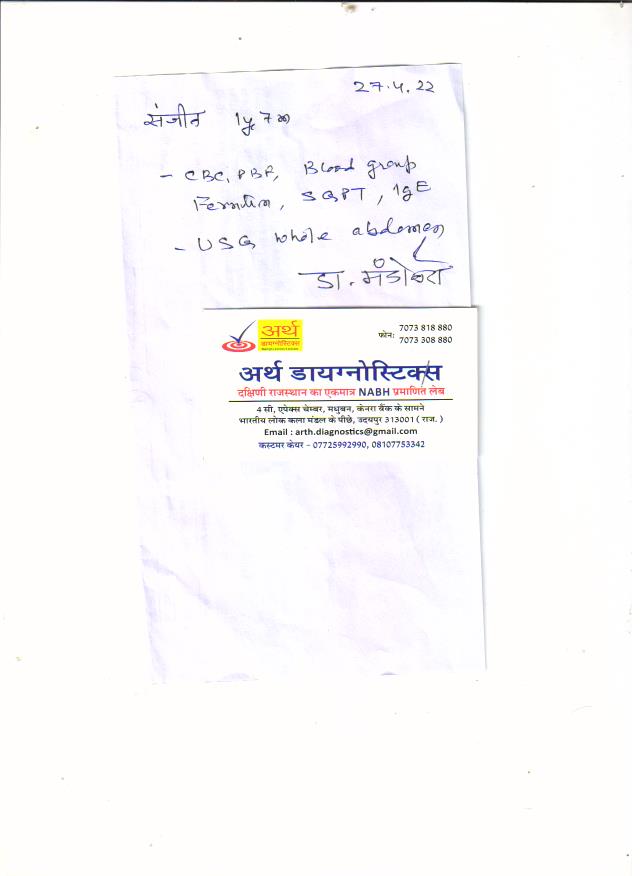 27.4.22
संजीव 1y 7m
- CBC, PBF, Blood group
Ferritin, SGPT, IgE
- USG whole abdomen
डा.
अर्थ
डायग्नोस्टिक्स
फोन: 7073 818 880
7073 308 880
अर्थ डायग्नोस्टिक्स
दक्षिणी राजस्थान का एकमात्र NABH प्रमाणित लेब
4 सी, एपेक्स चेम्बर, मधुबन, केनरा बैंक के सामने
भारतीय लोक कला मंडल के पीछे, उदयपुर 313001 ( राज. )
Email : arth.diagnostics@gmail.com
कस्टमर केयर - 07725992990, 08107753342